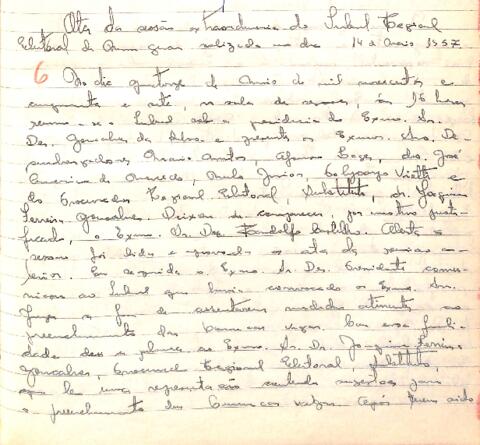 Ata da sessão extraordinaria do Tribunal Regional
Eleitoral de realizada no dia 14 de Maio 1957
6 No dia quatorze de Maio de mil novecentos e
cinquenta e sete, na sala de sessões, ás 16 horas
reuniu-se o Tribunal sob a presidencia do Exmo. Sr.
Des. Gonçalves da Silva e presente os Exmos. Srs. De-
sembargadores Mario Matos, Afonso Lages, drs. José
Americo de Macedo, Paulo Junior, e
do Procurador Regional Eleitoral, Substituto, dr. Joaquim
Ferreira Gonçalves. Deixou de comparecer, por motivo justi-
ficado, o Exmo. Sr. Des. Aberta a
sessão foi lida e aprovada a ata da sessão an-
terior. Em seguida o Exmo. Sr. Des. Presidente comu-
nicou ao Tribunal que havia convocado os Exmos. Srs.
Juizes a fim de assentarem medidas atinentes ao
preenchimento das comarcas vagas. Com essa finali-
dade deu a palavra ao Exmo. Sr. Dr. Joaquim Ferreira
Gonçalves, Procurador Regional Eleitoral, Substituto,
que leu uma representação contendo sugestões para
o preenchimento das comarcas vagas. Após terem sido